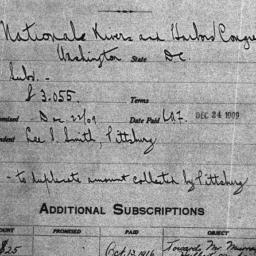 National Rivers and Harbors Congre
Washington State DC
Subs. -
$3.055. Terms
omised - Dec 22/09 Date Paid DEC 24 1909
ndent Lee S. Smith, Pittsburg
- to duplicate amount collected by Pittsburg
ADDITIONAL SUBSCRIPTIONS
OUNT PROMISED PAID OBJECT
$25 Oct. 13. 1916 Toward Mr.